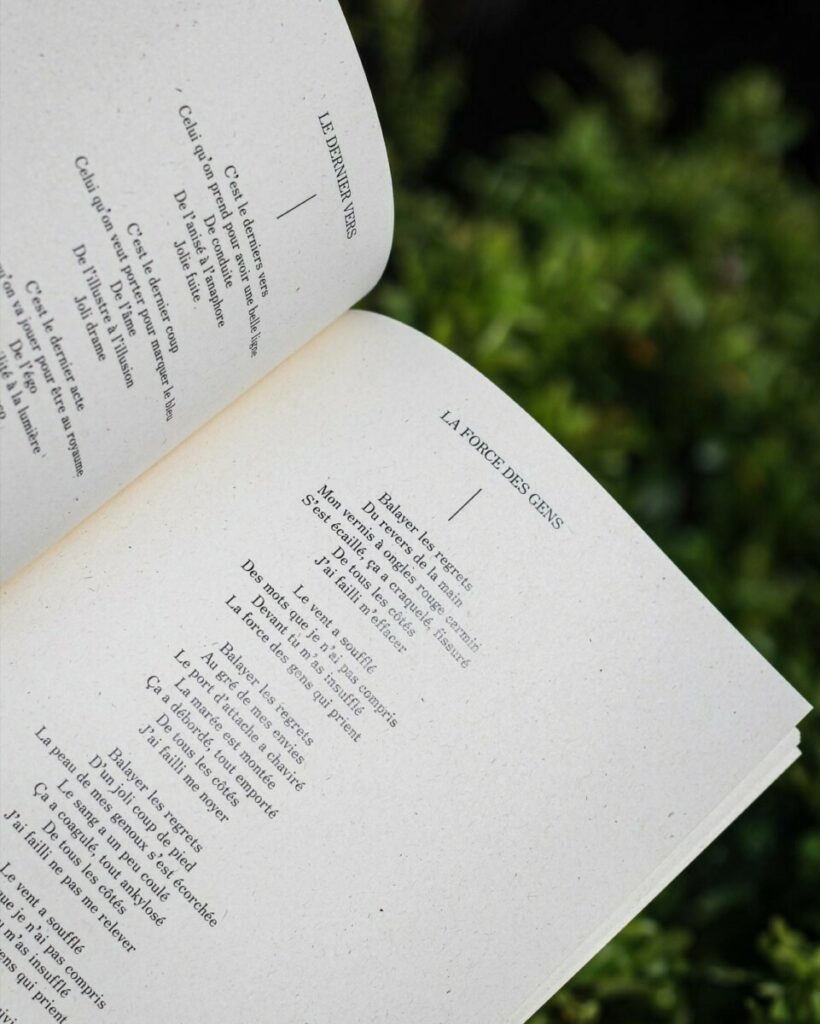 LE DERNIER VERS
C'est le derniers vers
Celui qu'on prend pour avoir une belle ligne
De conduite
De l'anisé à l'anaphore
Jolie fuite
C'est le dernier coup
Celui qu'on veut porter pour marquer le bleu
De l'âme
De l'illustre à l'illusion
Joli drame
C'est le dernier acte
qu'on va jouer pour être au royaume
De l'égo
à la lumière
LA FORCE DES GENS
Balayer les regrets
Du revers de la main
Mon vernis à ongles rouge carmin
S'est écaillé, ça a craquelé, fissuré
De tous les côtés
J'ai failli m'effacer
Le vent a soufflé
Des mots que je n'ai pas compris
Devant tu m'as insufflé
La force des gens qui prient
Balayer les regrets
Au gré de mes envies
Le port d'attache a chaviré
La marée est montée
Ça a débordé, tout emporté
De tous les côtés
J'ai failli me noyer
Balayer les regrets
D'un joli coup de pied
La peau de mes genoux s'est écorchée
Le sang a un peu coulé
Ça a coagulé, tout ankylosé
De tous les côtés
J'ai failli ne pas me relever
Le vent a soufflé
que je n'ai pas compris
tu m'as insufflé
gens qui prient